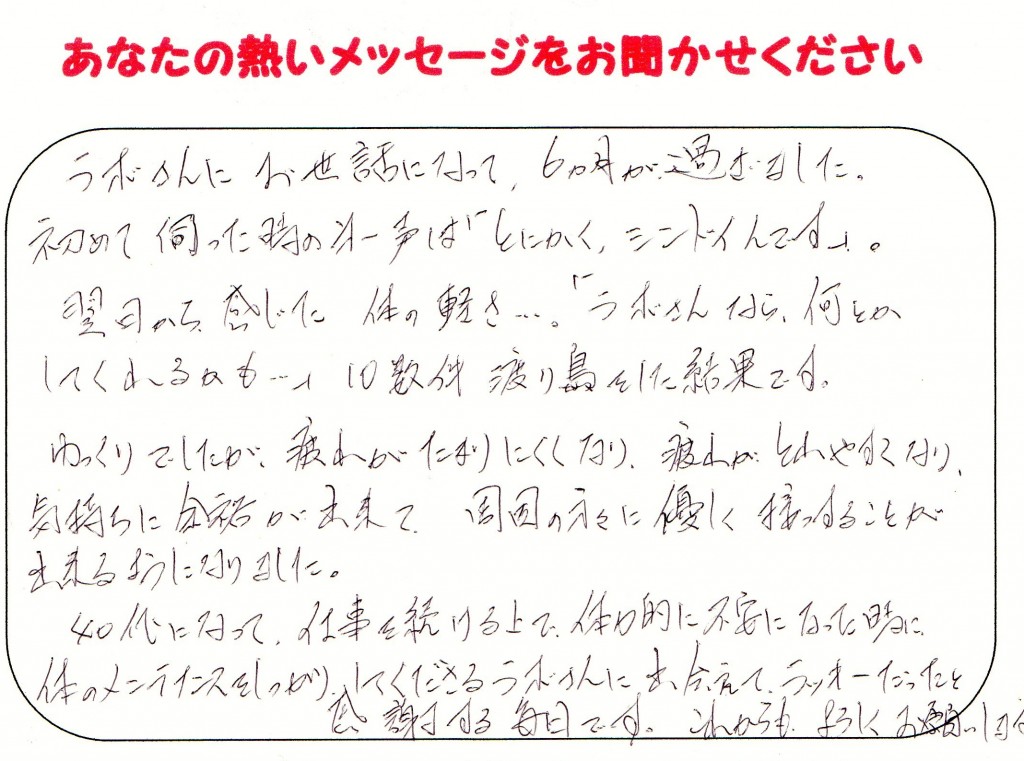 あなたの熱いメッセージをお聞かせください
ラボさんにお世話になって、6ヵ月が過ぎました。
初めて伺った時の第一声は「とにかく、シンドイんです」。
翌日から、感じた 体の軽さ…。「ラボさんなら、何とか
してくれるかも…」 10数件 渡り鳥をした結果です。
ゆっくりでしたが、疲れがたまりにくくなり、疲れがとれやすくなり、
気持ちに余裕が出来て、周囲の方々に優しく接っすることが
出来るようになりました。
40代になって、仕事を続ける上で、体力的に不安になった時に、
体のメンテナンスをしっかりしてくださるラボさんに出会えて、ラッキーだったと
感謝する毎日です。これからも、よろしくお願いします